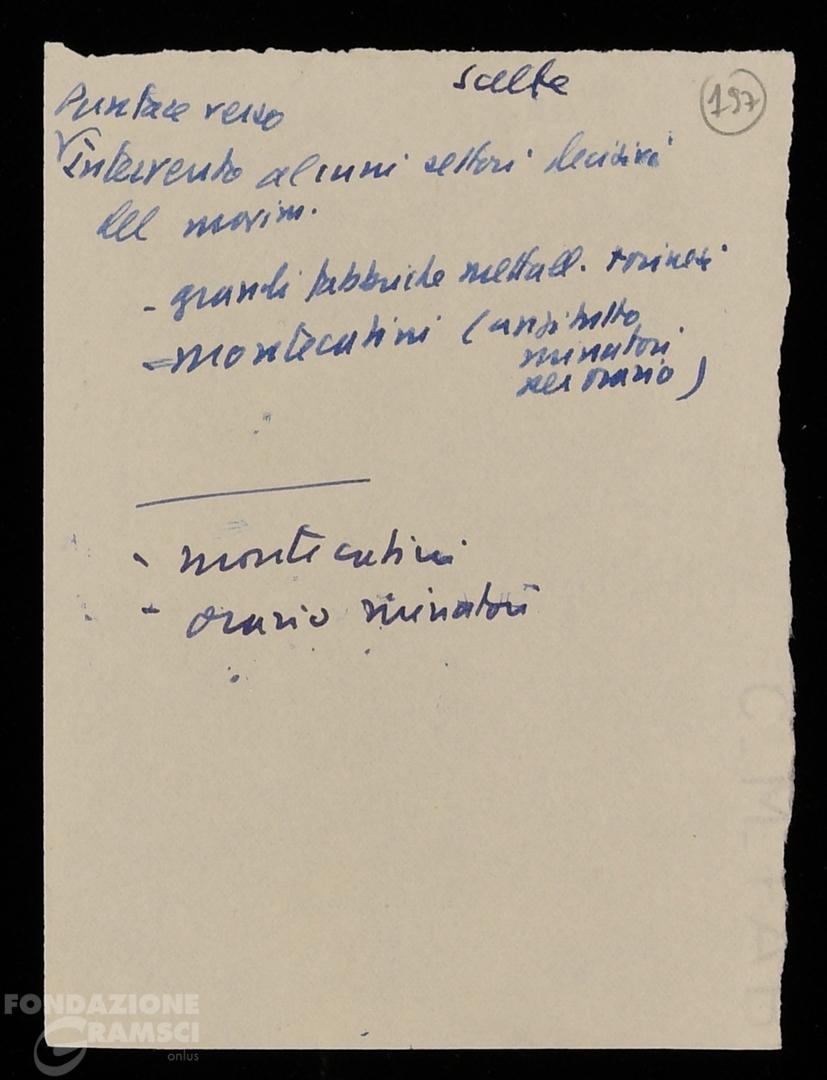 scelte
197
Puntare verso
Intervento alcuni settori decisivi
del movim.
- grandi fabbriche metall. torinesi
= Montecatini (anzitutto
minatori
per orario)
- montecatini
- orario minatori
FONDAZIONE
GRAMSCI
onlus